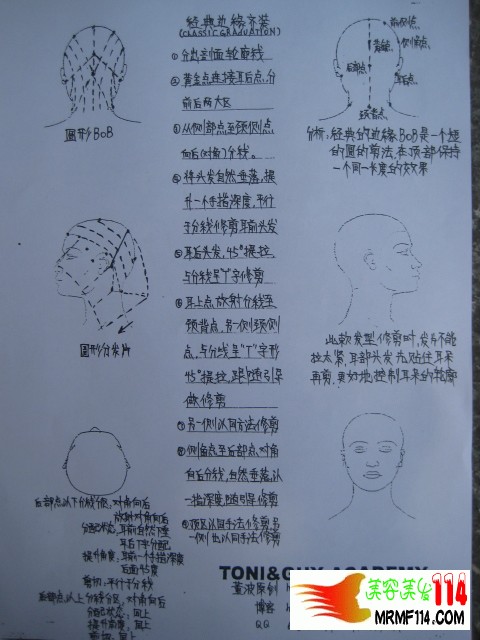 经典边缘层次
(CLASSIC GRADUATION)
① 分出剖面轮廓线
② 黄金点连接耳后点,分
前后两大区
③ 从侧部点至颈侧点,
向后(对角)分线。
④ 将头发自然垂落,提
升一个手指深度,平行
于分线修剪耳前头发
⑤ 耳后头发,45°提拉,
与分线呈"丁"字修剪
⑥ 耳上点,放射分线至
颈背点,另一侧颈侧
点,与分线呈"丁"字形
45°提拉,跟随引导
做修剪
⑦ 另一侧以同方法修剪
⑧ 侧角点至后部点,对角
向后分线,自然垂落,以
一指深度,随引导修剪
⑨ 顶区以同手法修剪,另
一侧也以同手法修剪
圆形BOB
圆形分发片
后部点以下分线分份,对角向后
放射对角向后
分配状态,耳前自然下垂
耳后丁字分配
提升角度,耳前一个手指深度
后面45度
剪切,平行于分线
后部点以上分线分区,对角向后
分配状态,同上
提升角度,同上
前侧点
黄金点
侧角点
后部点
耳后点
颈背点
分析:经典的边缘BOB是一个短
的圆的剪法,在顶部保持
一个同一长度的效果
此款发型修剪时,发片不能
拉太紧,耳部头发先贴住耳朵
再剪,更好地控制耳朵的轮廓
TONI&GUY ACADEMY
原创
博客
QQ
美容美发114
MRMF114.COM